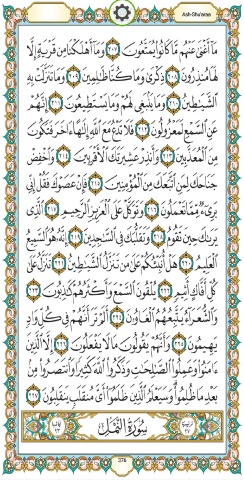 Ash-Shu'araa
مَآ أَغْنَىٰ عَنْهُم مَّا كَانُوا۟ يُمَتَّعُونَ ٢٠٧ وَمَآ أَهْلَكْنَا مِن قَرْيَةٍ إِلَّا
لَهَا مُنذِرُونَ ٢٠٨ ذِكْرَىٰ وَمَا كُنَّا ظَٰلِمِينَ ٢٠٩ وَمَا تَنَزَّلَتْ بِهِ
ٱلشَّيَٰطِينُ ٢١٠ وَمَا يَنۢبَغِى لَهُمْ وَمَا يَسْتَطِيعُونَ ٢١١ إِنَّهُمْ
عَنِ ٱلسَّمْعِ لَمَعْزُولُونَ ٢١٢ فَلَا تَدْعُ مَعَ ٱللَّهِ إِلَٰهًا ءَاخَرَ فَتَكُونَ
مِنَ ٱلْمُعَذَّبِينَ ٢١٣ وَأَنذِرْ عَشِيرَتَكَ ٱلْأَقْرَبِينَ ٢١٤ وَٱخْفِضْ
جَنَاحَكَ لِمَنِ ٱتَّبَعَكَ مِنَ ٱلْمُؤْمِنِينَ ٢١٥ فَإِنْ عَصَوْكَ فَقُلْ إِنِّى
بَرِىٓءٌ مِّمَّا تَعْمَلُونَ ٢١٦ وَتَوَكَّلْ عَلَى ٱلْعَزِيزِ ٱلرَّحِيمِ ٢١٧ ٱلَّذِى
يَرَىٰكَ حِينَ تَقُومُ ٢١٨ وَتَقَلُّبَكَ فِى ٱلسَّٰجِدِينَ ٢١٩ إِنَّهُۥ هُوَ ٱلسَّمِيعُ
ٱلْعَلِيمُ ٢٢٠ هَلْ أُنَبِّئُكُمْ عَلَىٰ مَن تَنَزَّلُ ٱلشَّيَٰطِينُ ٢٢١ تَنَزَّلُ عَلَىٰ
كُلِّ أَفَّاكٍ أَثِيمٍ ٢٢٢ يُلْقُونَ ٱلسَّمْعَ وَأَكْثَرُهُمْ كَٰذِبُونَ ٢٢٣
وَٱلشُّعَرَآءُ يَتَّبِعُهُمُ ٱلْغَاوُۥنَ ٢٢٤ أَلَمْ تَرَ أَنَّهُمْ فِى كُلِّ وَادٍ
يَهِيمُونَ ٢٢٥ وَأَنَّهُمْ يَقُولُونَ مَا لَا يَفْعَلُونَ ٢٢٦ إِلَّا ٱلَّذِينَ
ءَامَنُوا۟ وَعَمِلُوا۟ ٱلصَّٰلِحَٰتِ وَذَكَرُوا۟ ٱللَّهَ كَثِيرًا وَٱنتَصَرُوا۟ مِنۢ
بَعْدِ مَا ظُلِمُوا۟ وَسَيَعْلَمُ ٱلَّذِينَ ظَلَمُوٓا۟ أَىَّ مُنقَلَبٍ يَنقَلِبُونَ ٢٢٧
سُورَةُ النَّمْلِ
376